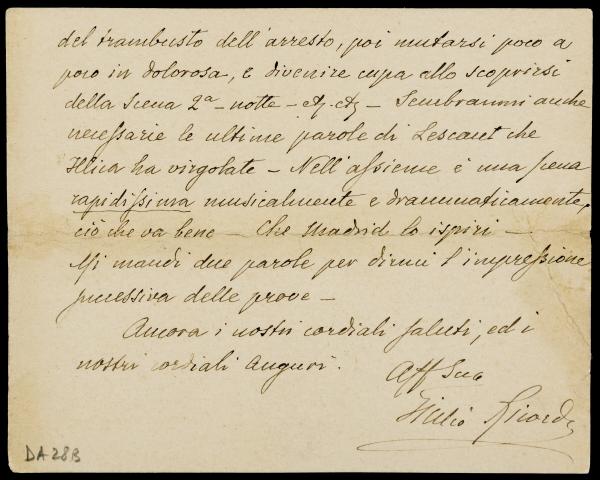 del trambusto dell'arresto, poi mutarsi poco a
poco in dolorosa, e divenire cupa allo scoprirsi
della scena 2ª - notte - &. &. - Sembranmi anche
necessarie le ultime parole di Lescaut che
Illica ha virgolate - Nell'assieme è una scena
rapidissima musicalmente e drammaticamente,
ciò che va bene - Che Madrid lo ispiri -
Mi mandi due parole per dirmi l'impressione
successiva delle prove -
Ancora i nostri cordiali saluti, ed i
nostri cordiali auguri.
Aff Suo
Giulio Ricordi
DA 28B